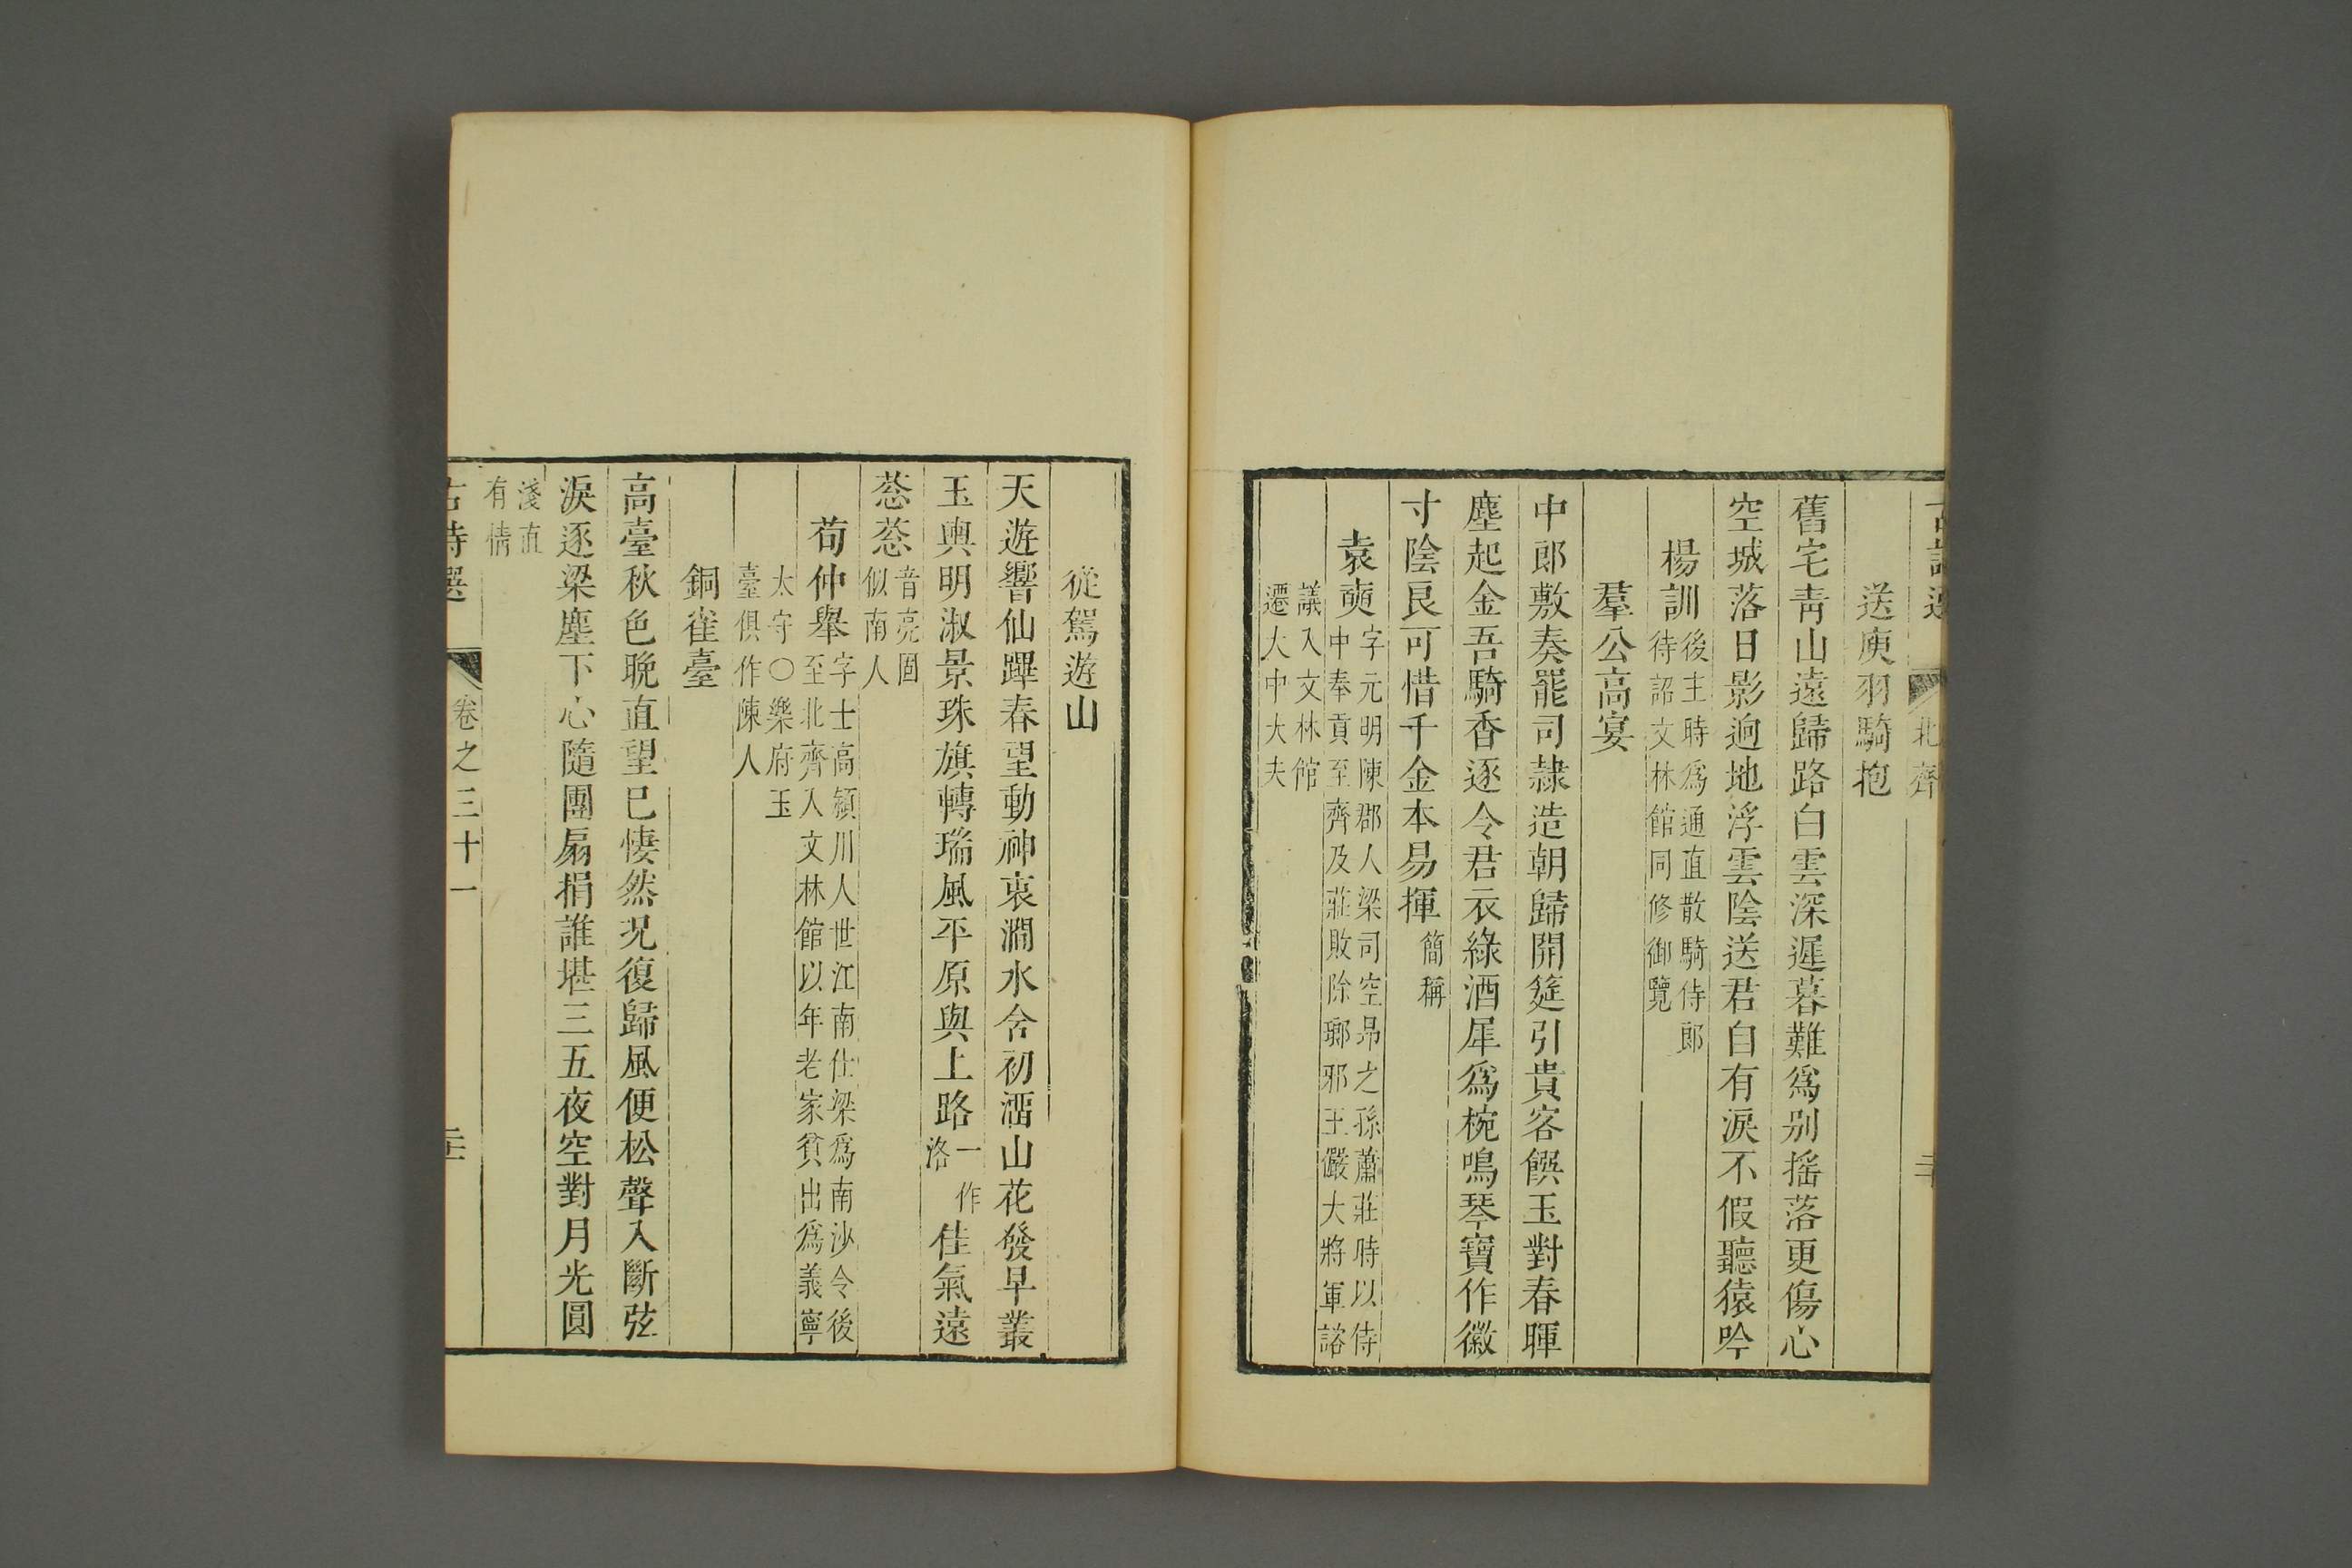 北齊
送庾羽騎抱
舊宅靑山遠歸路白雲深遲暮難爲別搖落更傷心
空城落日影逈地浮雲陰送君自有淚不假聽猿吟
楊訓後主時爲通直散騎侍郎
待詔文林館同修御覽
羣公高宴
中郎敷奏罷司隷造朝歸開筵引貴客饌玉對春暉
塵起金吾騎香逐令君衣綠酒犀爲椀鳴琴寶作徽
寸陰良可惜千金本易揮簡稱
袁奭字元明陳郡人梁司空昂之孫蕭莊時以侍
中奉貢至齊及莊敗除瑯邪王儼大將軍諮
議入文林館
遷大中大夫
從駕遊山
天遊響仙蹕春望動神衷澗水含初溜山花發早叢
玉輿明淑景珠旗轉瑞風平原與上路一作
洛佳氣遠
葱葱音亮固
似南人
荀仲舉字士高潁川人世江南仕梁爲南沙令後
至北齊入文林館以年老家貧出爲義寧
太守〇樂府玉
臺俱作陳人
銅雀臺
高臺秋色晚直望已悽然況復歸風便松聲入斷弦
淚逐梁塵下心隨團扇捐誰堪三五夜空對月光圓
淺直
有情
古詩選 卷之三十一